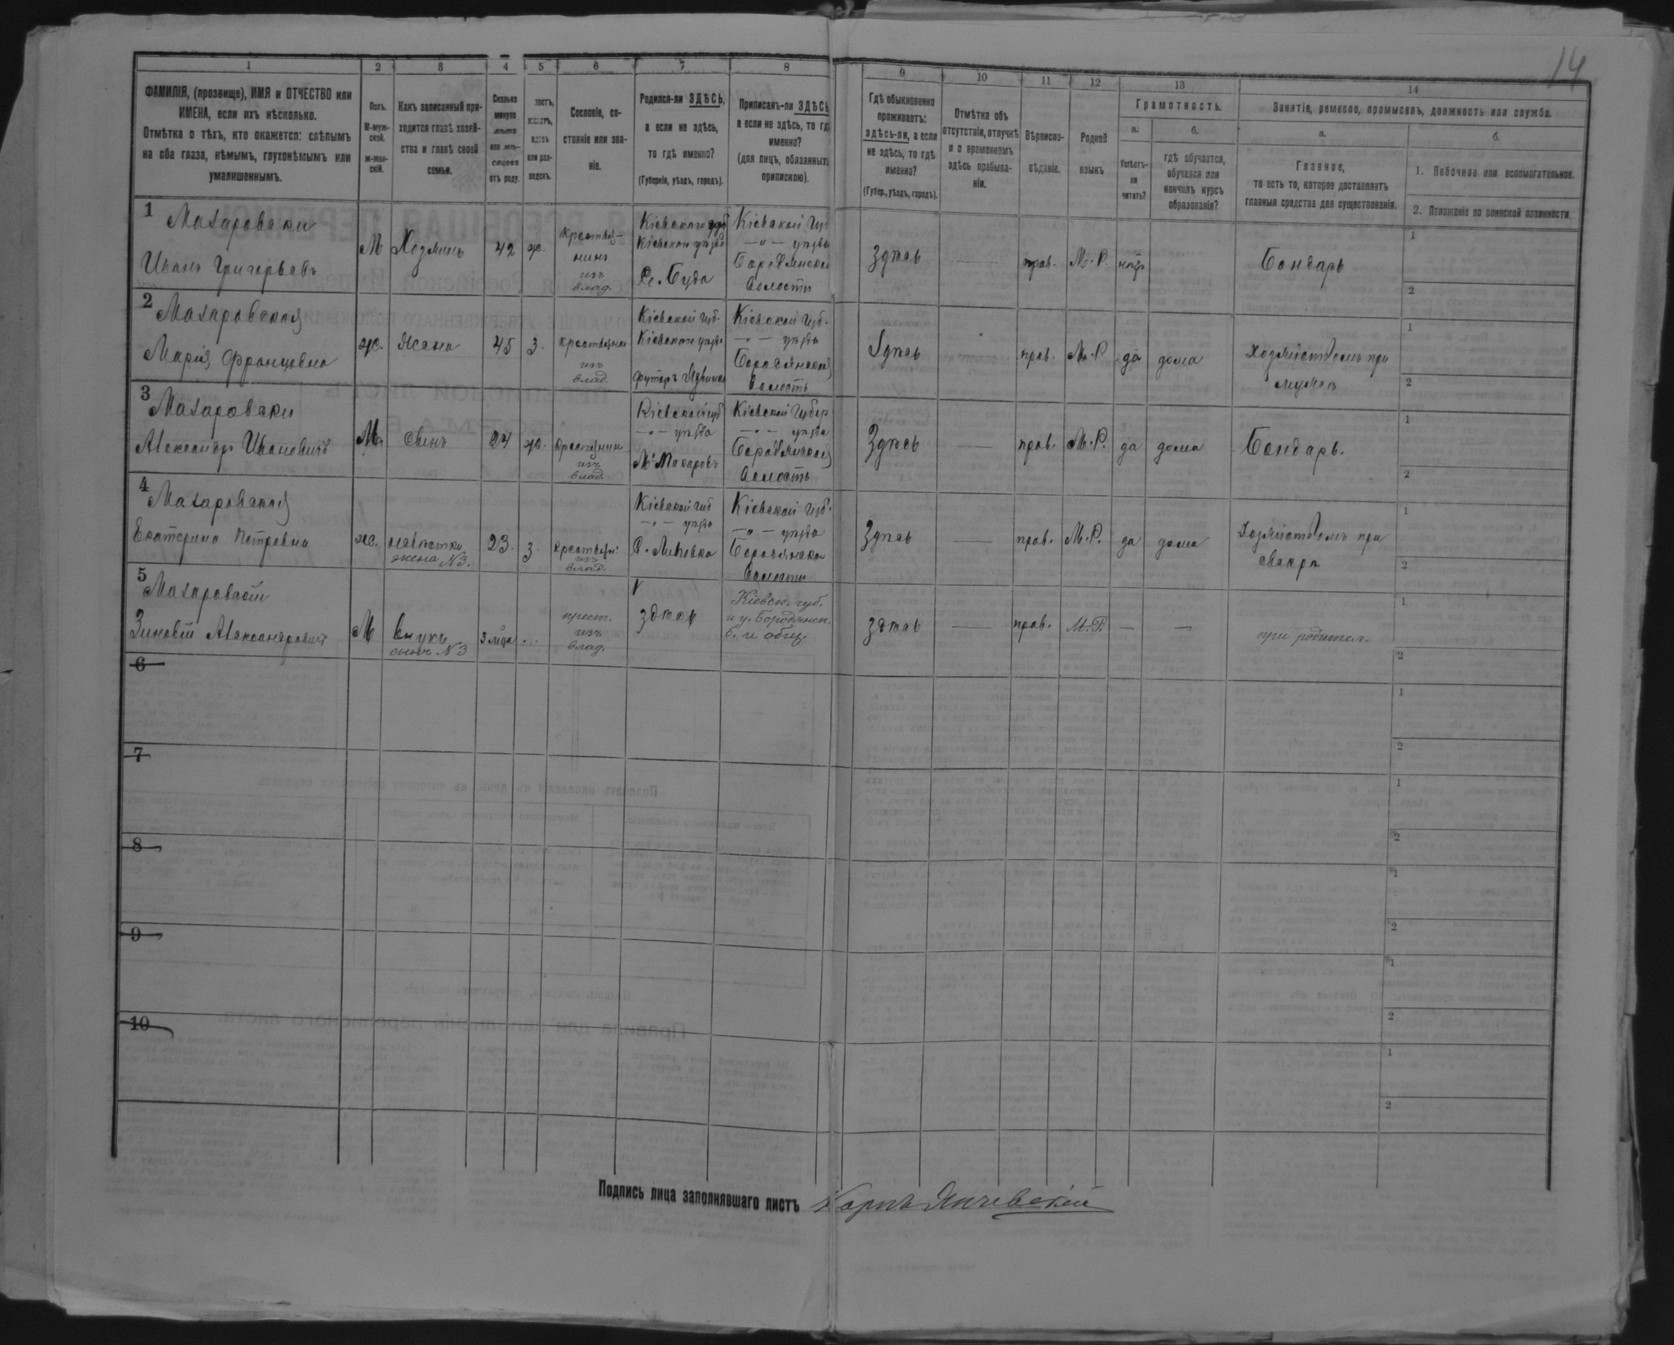 14
1 2 3 4 5 6 7 8 9 10 11 12 13 14
ФАМИЛІЯ, (прозвище), ИМЯ и ОТЧЕСТВО или
ИМЕНА, если ихъ нѣсколько.
Отмѣтка о тѣхъ, кто окажется: слѣпымъ
на оба глаза, нѣмымъ, глухонѣмымъ или
умалишеннымъ.
Полъ.
М-муж-
ской.
Ж-жен-
скій.
Какъ записанный при-
ходится главѣ хозяй-
ства и главѣ своей
семьи.
Сколько
минуло
лѣтъ
или мѣ-
сяцевъ
отъ роду.
Сословіе, со-
стояніе или зва-
ніе.
Родился-ли ЗДѢСЬ,
а если не здѣсь,
то гдѣ именно?
(Губернія, уѣздъ, городъ).
Приписанъ-ли ЗДѢСЬ
а если не здѣсь, то гдѣ
именно?
(для лицъ, обязанныхъ
припискою).
Гдѣ обыкновенно
проживаетъ:
здѣсь-ли, а если
не здѣсь, то гдѣ
именно?
(Губер., уѣздъ, городъ).
Отмѣтка объ
отсутствіи, отлучкѣ
и о временномъ
здѣсь пребыва-
ніи.
Вѣроиспо-
вѣданіе.
Родной
языкъ
Грамотность.
а.
Умѣетъ-
ли
читать?
б.
гдѣ обучается,
обучался или
кончилъ курсъ
образованія?
Занятіе, ремесло, промыселъ, должность или служба.
а.
Главное,
то есть то, которое доставляетъ
главныя средства для существованія.
б.
1. Побочное или вспомогательное.
2. Положеніе по воинской повинности.
1
Макаровски
Иванъ Григорьевъ
М Хозяинъ 42 ж. Крестья-
нинъ
изъ
влад.
Кіевской губ
Кіевской уѣзда
С. Буда
Кіевской губ
—„— уѣзда
Бородянской
Волости
Здѣсь — прав. М.Р. нѣтъ Бондарь
1
2
2
Макаровская
Марія Францовна
ж. Жена 45 з. крестьянка
изъ
влад.
Кіевской губ.
Кіевского уѣзда
Кіевской губ.
—„— уѣзда
Бородянской
Волость
Здѣсь прав. М.Р. да дома Хозяйствомъ при
мужѣ
1
2
3
Макаровски
Александръ Ивановичъ
М. сынъ 24 ж. крестьянин
изъ
влад.
Кіевской губ
—„— уѣзда
М. Макаровъ
Кіевской губер
—„— уѣзда
Бородянской
Волость
Здѣсь — прав. М.Р. да дома Бондарь.
1
2
4
Макаровская
Екатерина Петровна
ж. невѣстка
жена №3.
23. з. крестьян.
изъ
влад.
Кіевской губ
—„— уѣзда
С. Липовка
Кіевской губ.
—„— уѣзда
Бородянской
Волости
Здѣсь — прав. М.Р. да дома Хозяйствомъ при
свекрѣ
1
2
5
Макаровскій
Зиновій Александровичъ
М внукъ
сынъ №3
3 года ... крест.
изъ
влад.
здѣсь
Кіевск. губ.
и у. Бородянск.
в. и общ.
здѣсь — прав. М.Р. — — при родител.
1
2
6
1
2
7
1
2
8
1
2
9
1
2
10
1
2
Подпись лица заполнявшаго листъ